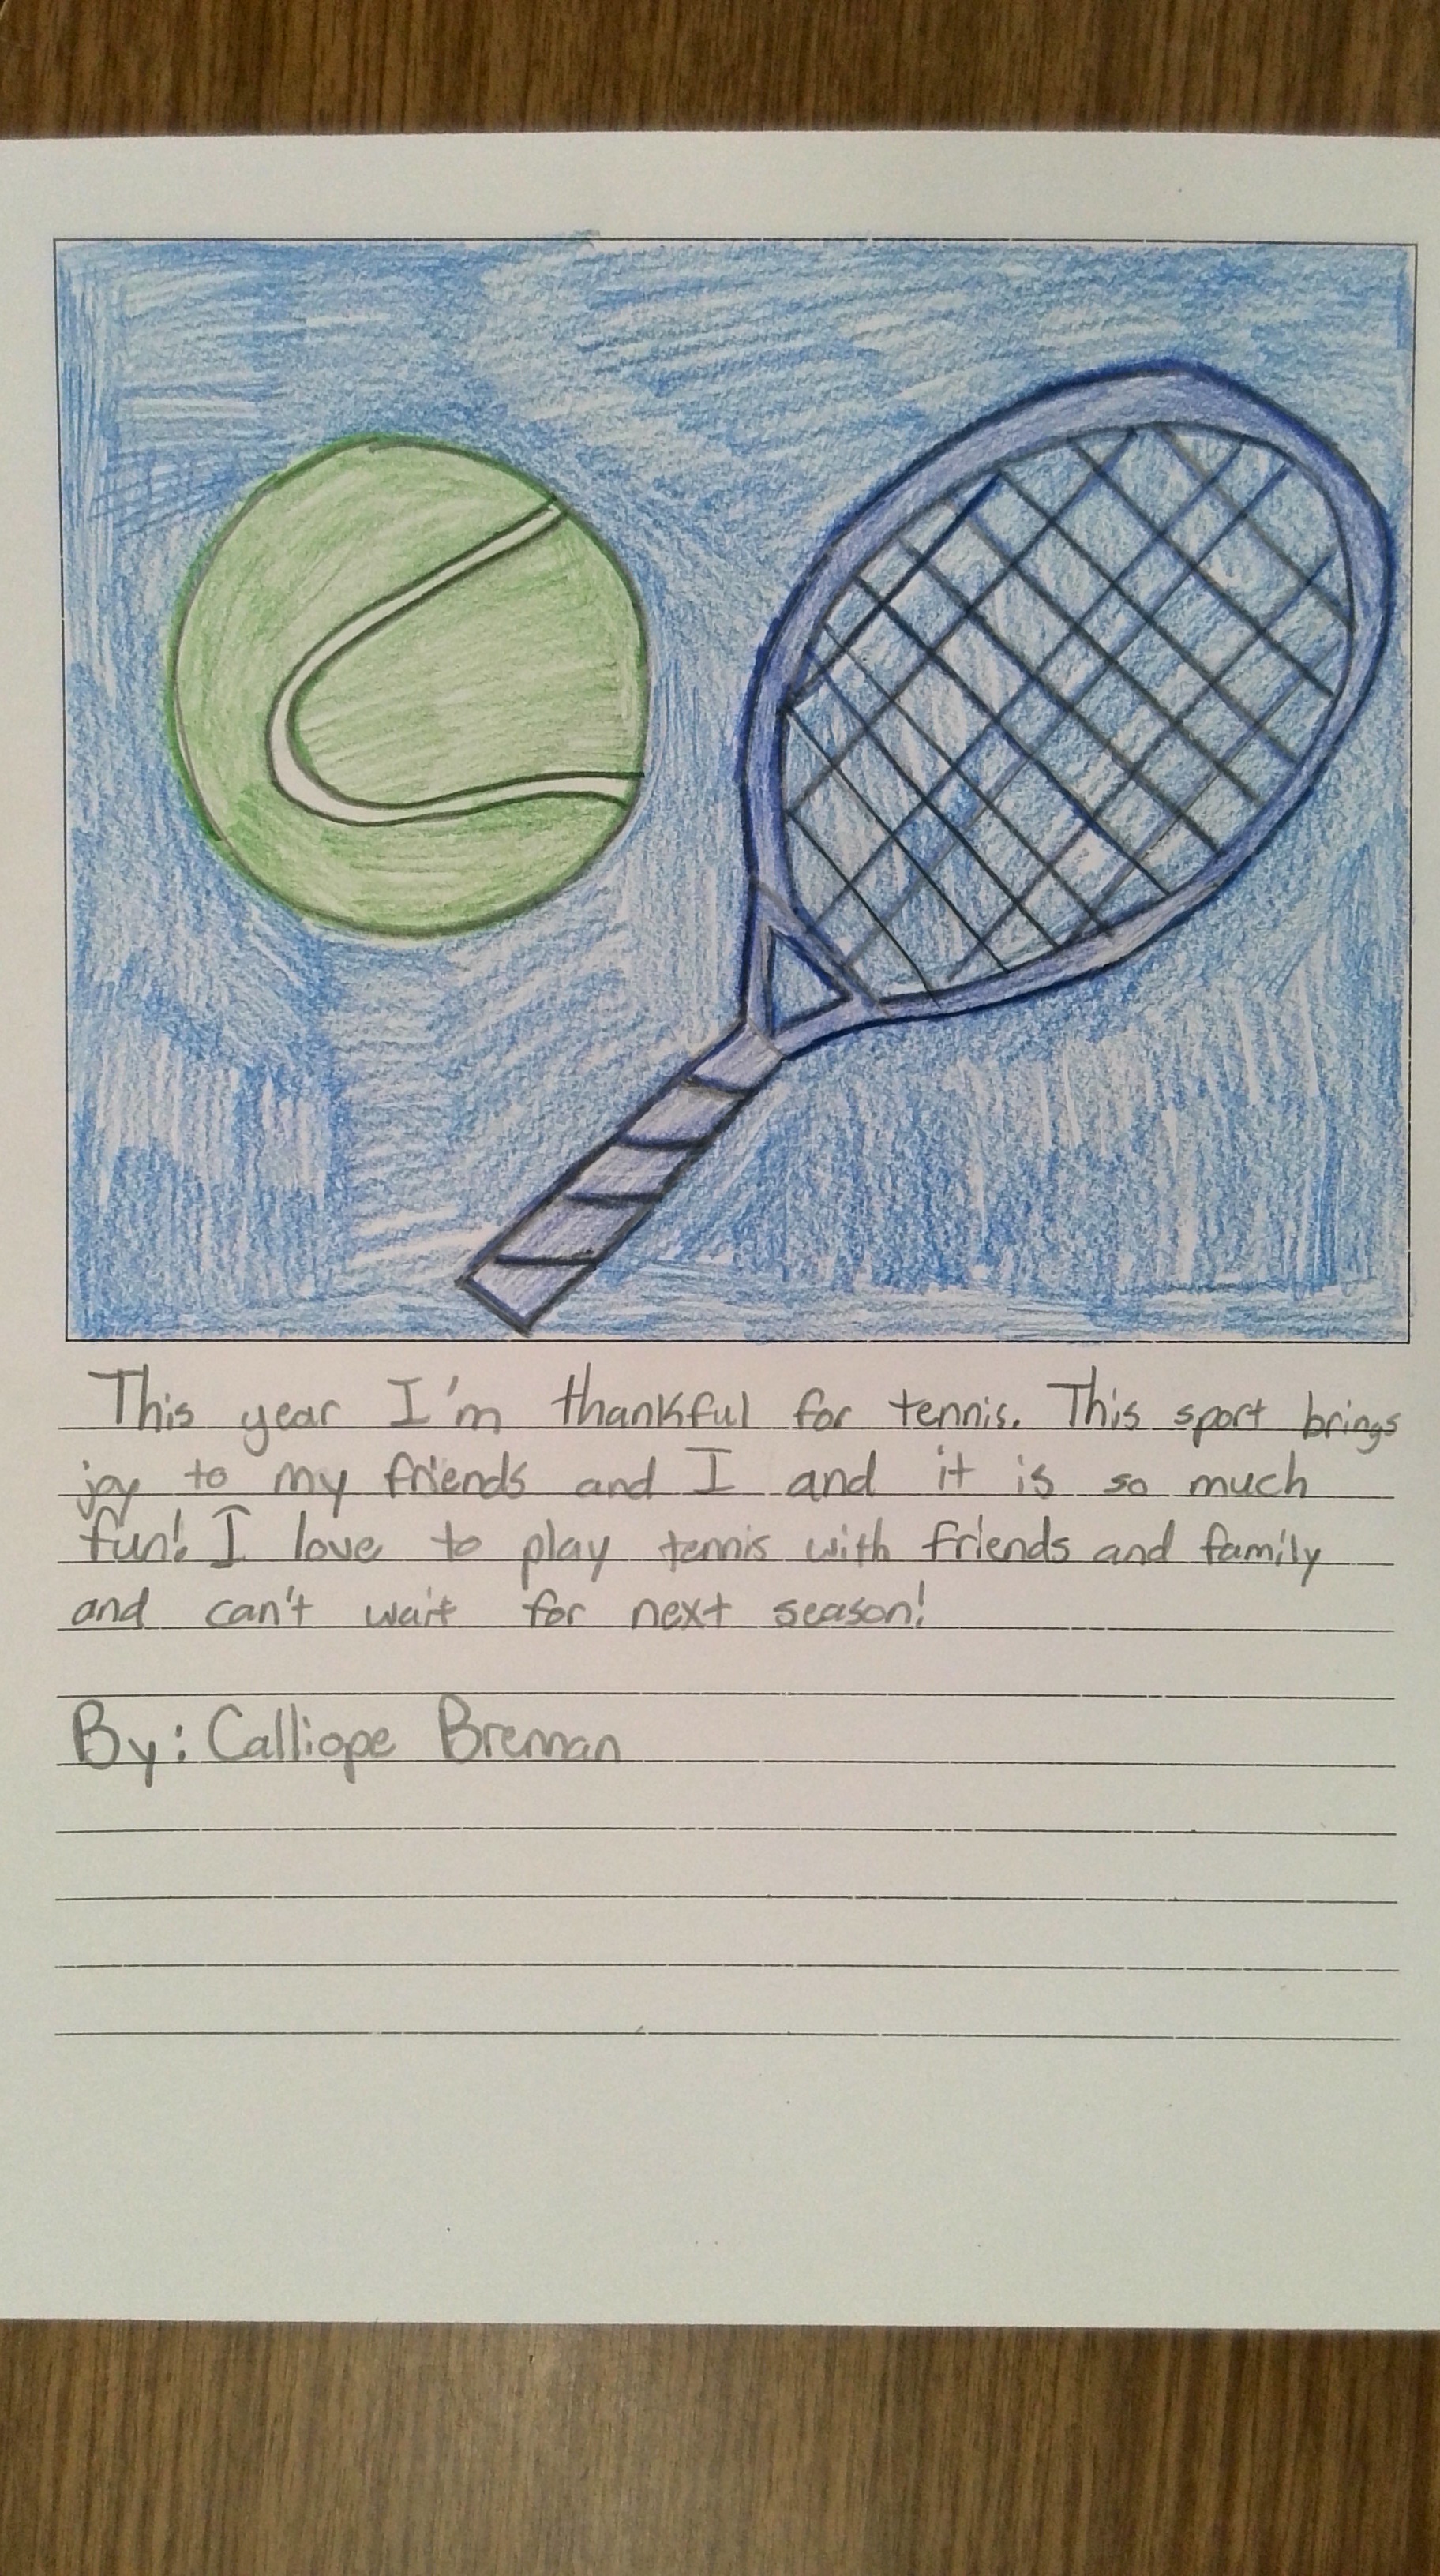 This year I'm thankful for tennis. This sport brings
joy to my friends and I and it is so much
fun! I love to play tennis with friends and family
and can't wait for next season!
By: Calliope Brennan